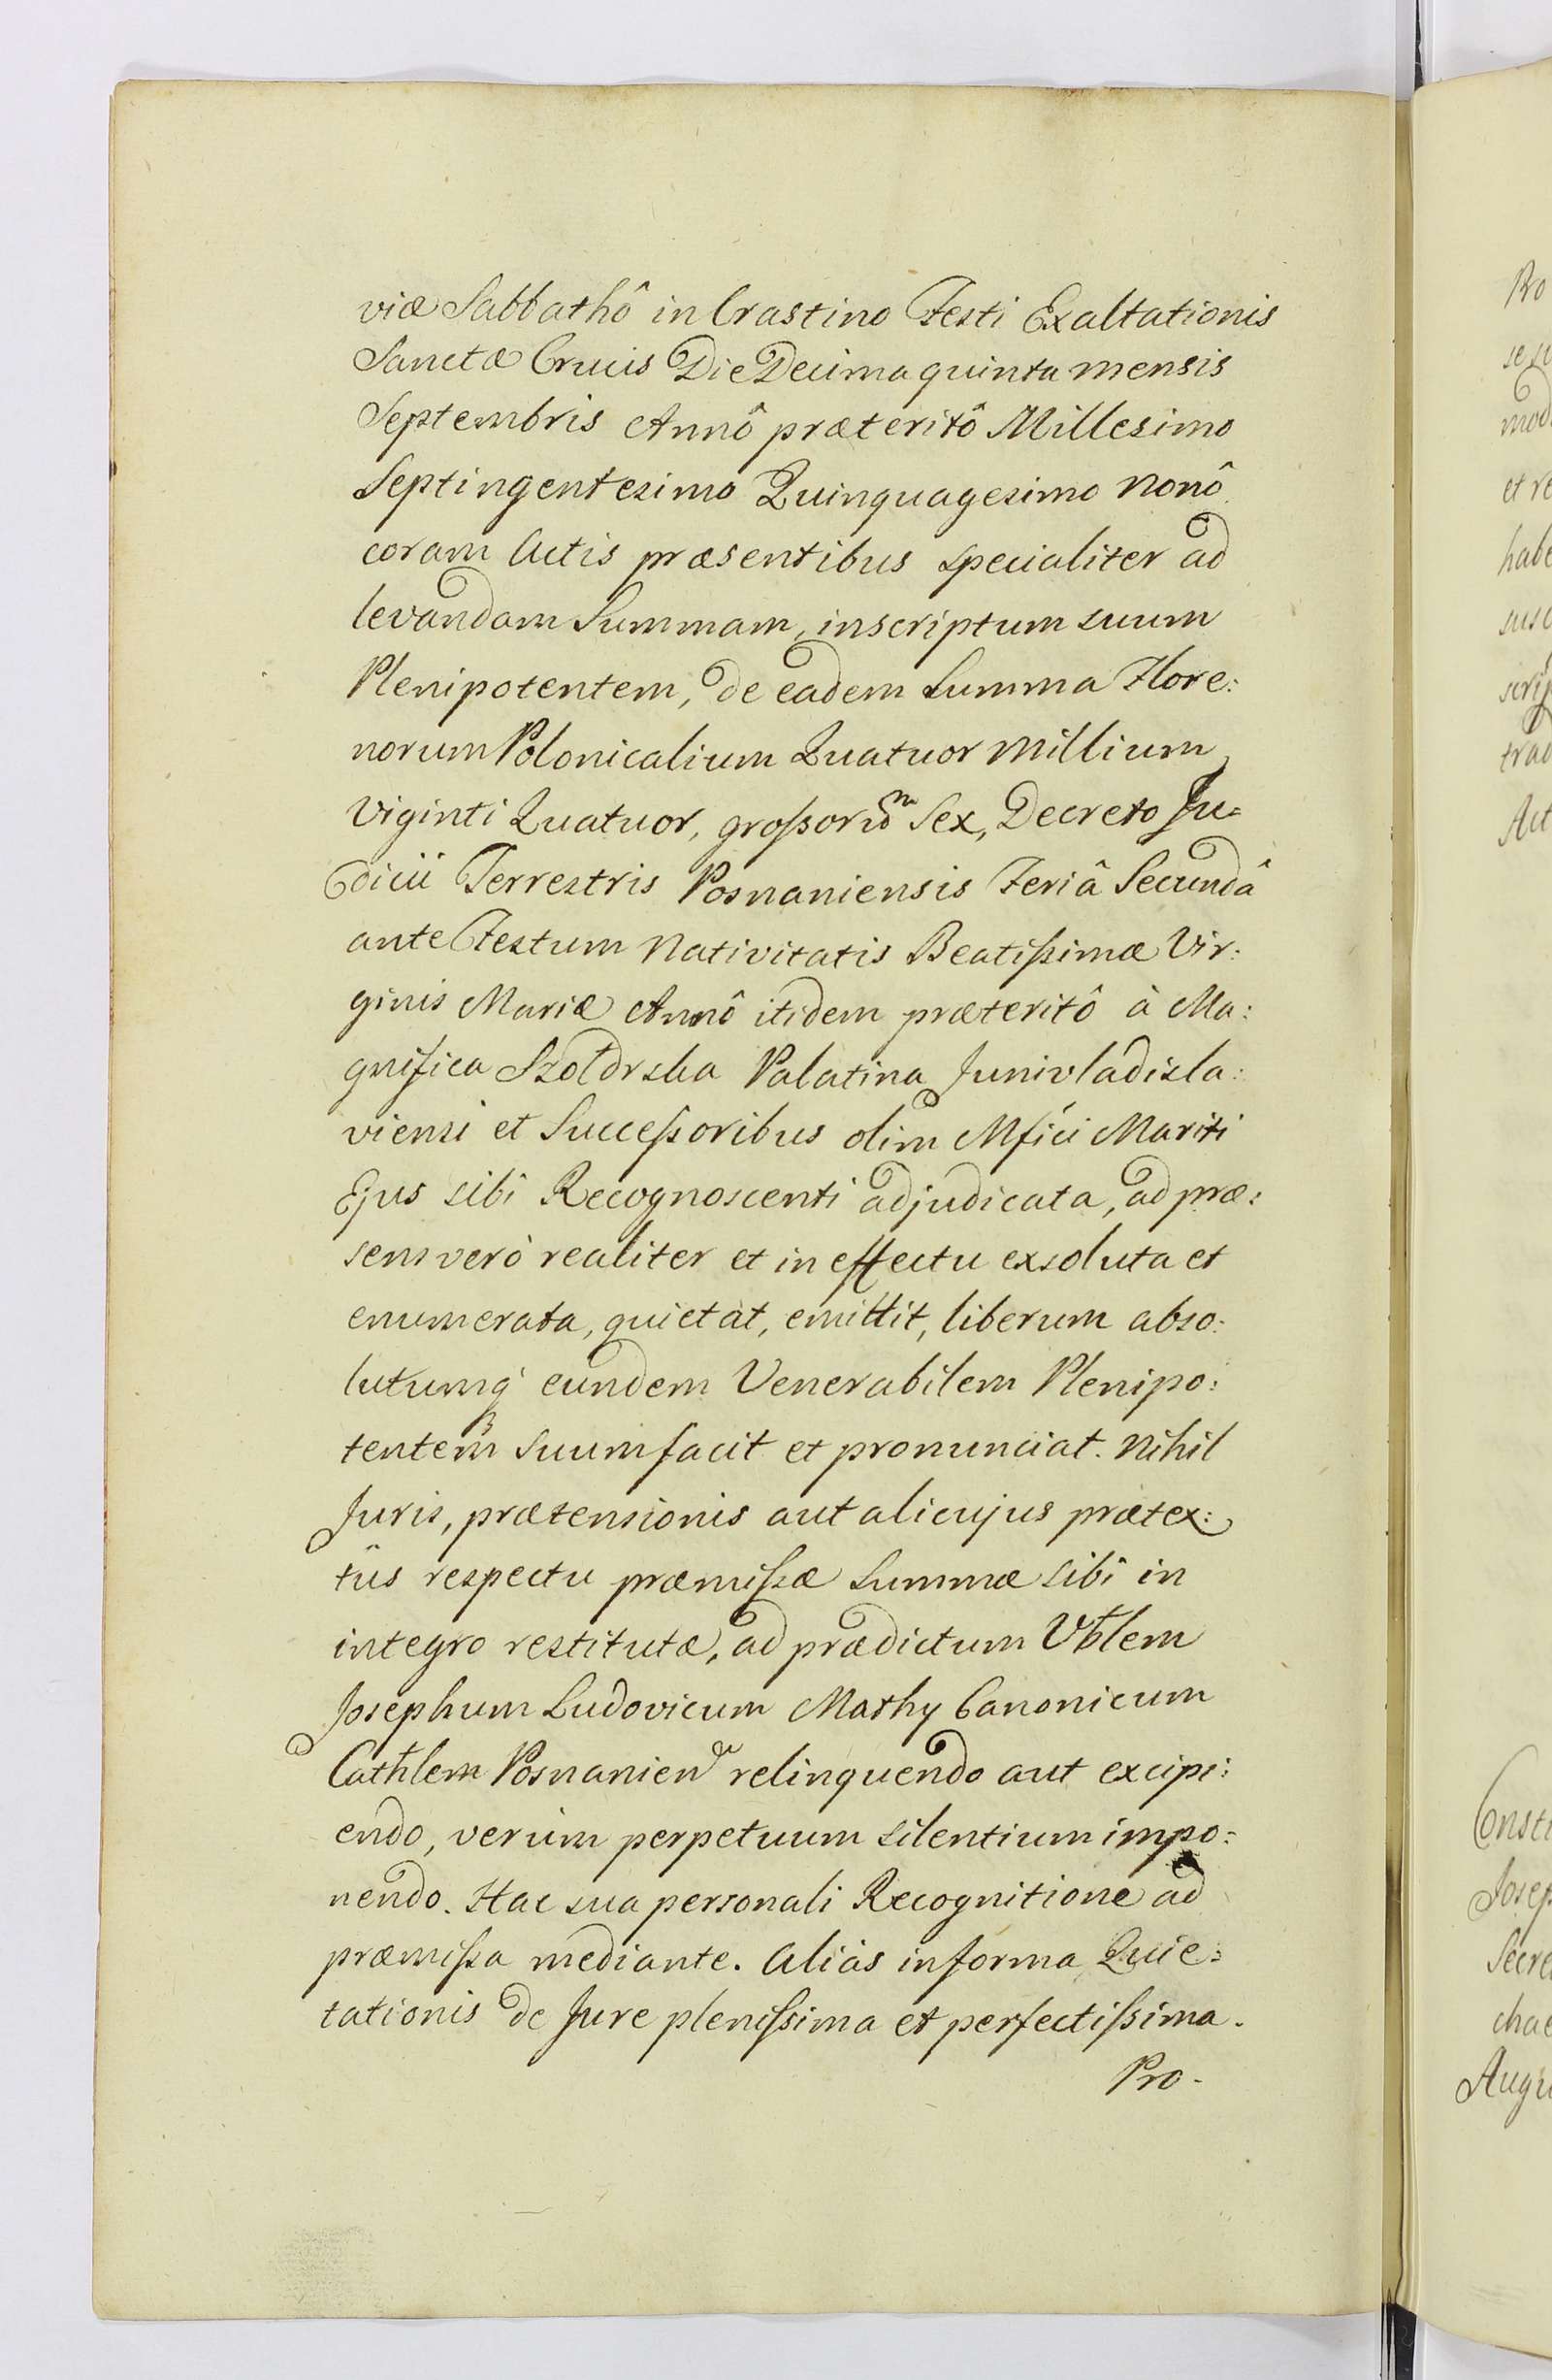 viæ Sabbathô in Crastino Festi Exaltationis
Sanctæ Crucis Die Decima quinta mensis
Septembris Annô præteritô Millesimo
Septingentesimo Quinquagesimo nonô
coram Actis præsentibus specialiter ad
levandam Summam, inscriptum suum
Plenipotentem, de eadem Summa Flore:
norum Polonicalium Quatuor millium
Viginti Quatuor, großoru͠m Sex, Decreto Ju=
dicii Terrestris Posnaniensis Feriâ Secundâ
ante Festum Nativitatis Beatißimæ Vir:
ginis Mariæ Annô itidem præteritô à Ma:
gnifica Szołdrska Palatina Junivladisla:
viensi et Succeßoribus olim Mfici Mariti
Ejus sibi Recognoscenti adjudicata, ad præ:
sens verò realiter et in effectu exsoluta et
enumerata, quietat, emittit, liberum abso:
lutumq' eundem Venerabilem Plenipo:
tentem suum facit et pronunciat. Nihil
Juris, prætensionis aut alicujus prætex:
tûs respectu præmißæ Summæ sibi in
integro restitutæ, ad prædictum Vblem
Josephum Ludovicum Mathy Canonicum
Cathlem Posnanien relinquendo aut excipi:
endo, verùm perpetuum silentium impo:
nendo. Hac sua personali Recognitione ad
præmißa mediante. Aliàs in forma Quie:
tationis de Jure plenißima et perfectißima.
Pro-
Pro
mod
et re
habe
susc
scrip
trad
Act
Consti
Josep
Secre
chae
Augu